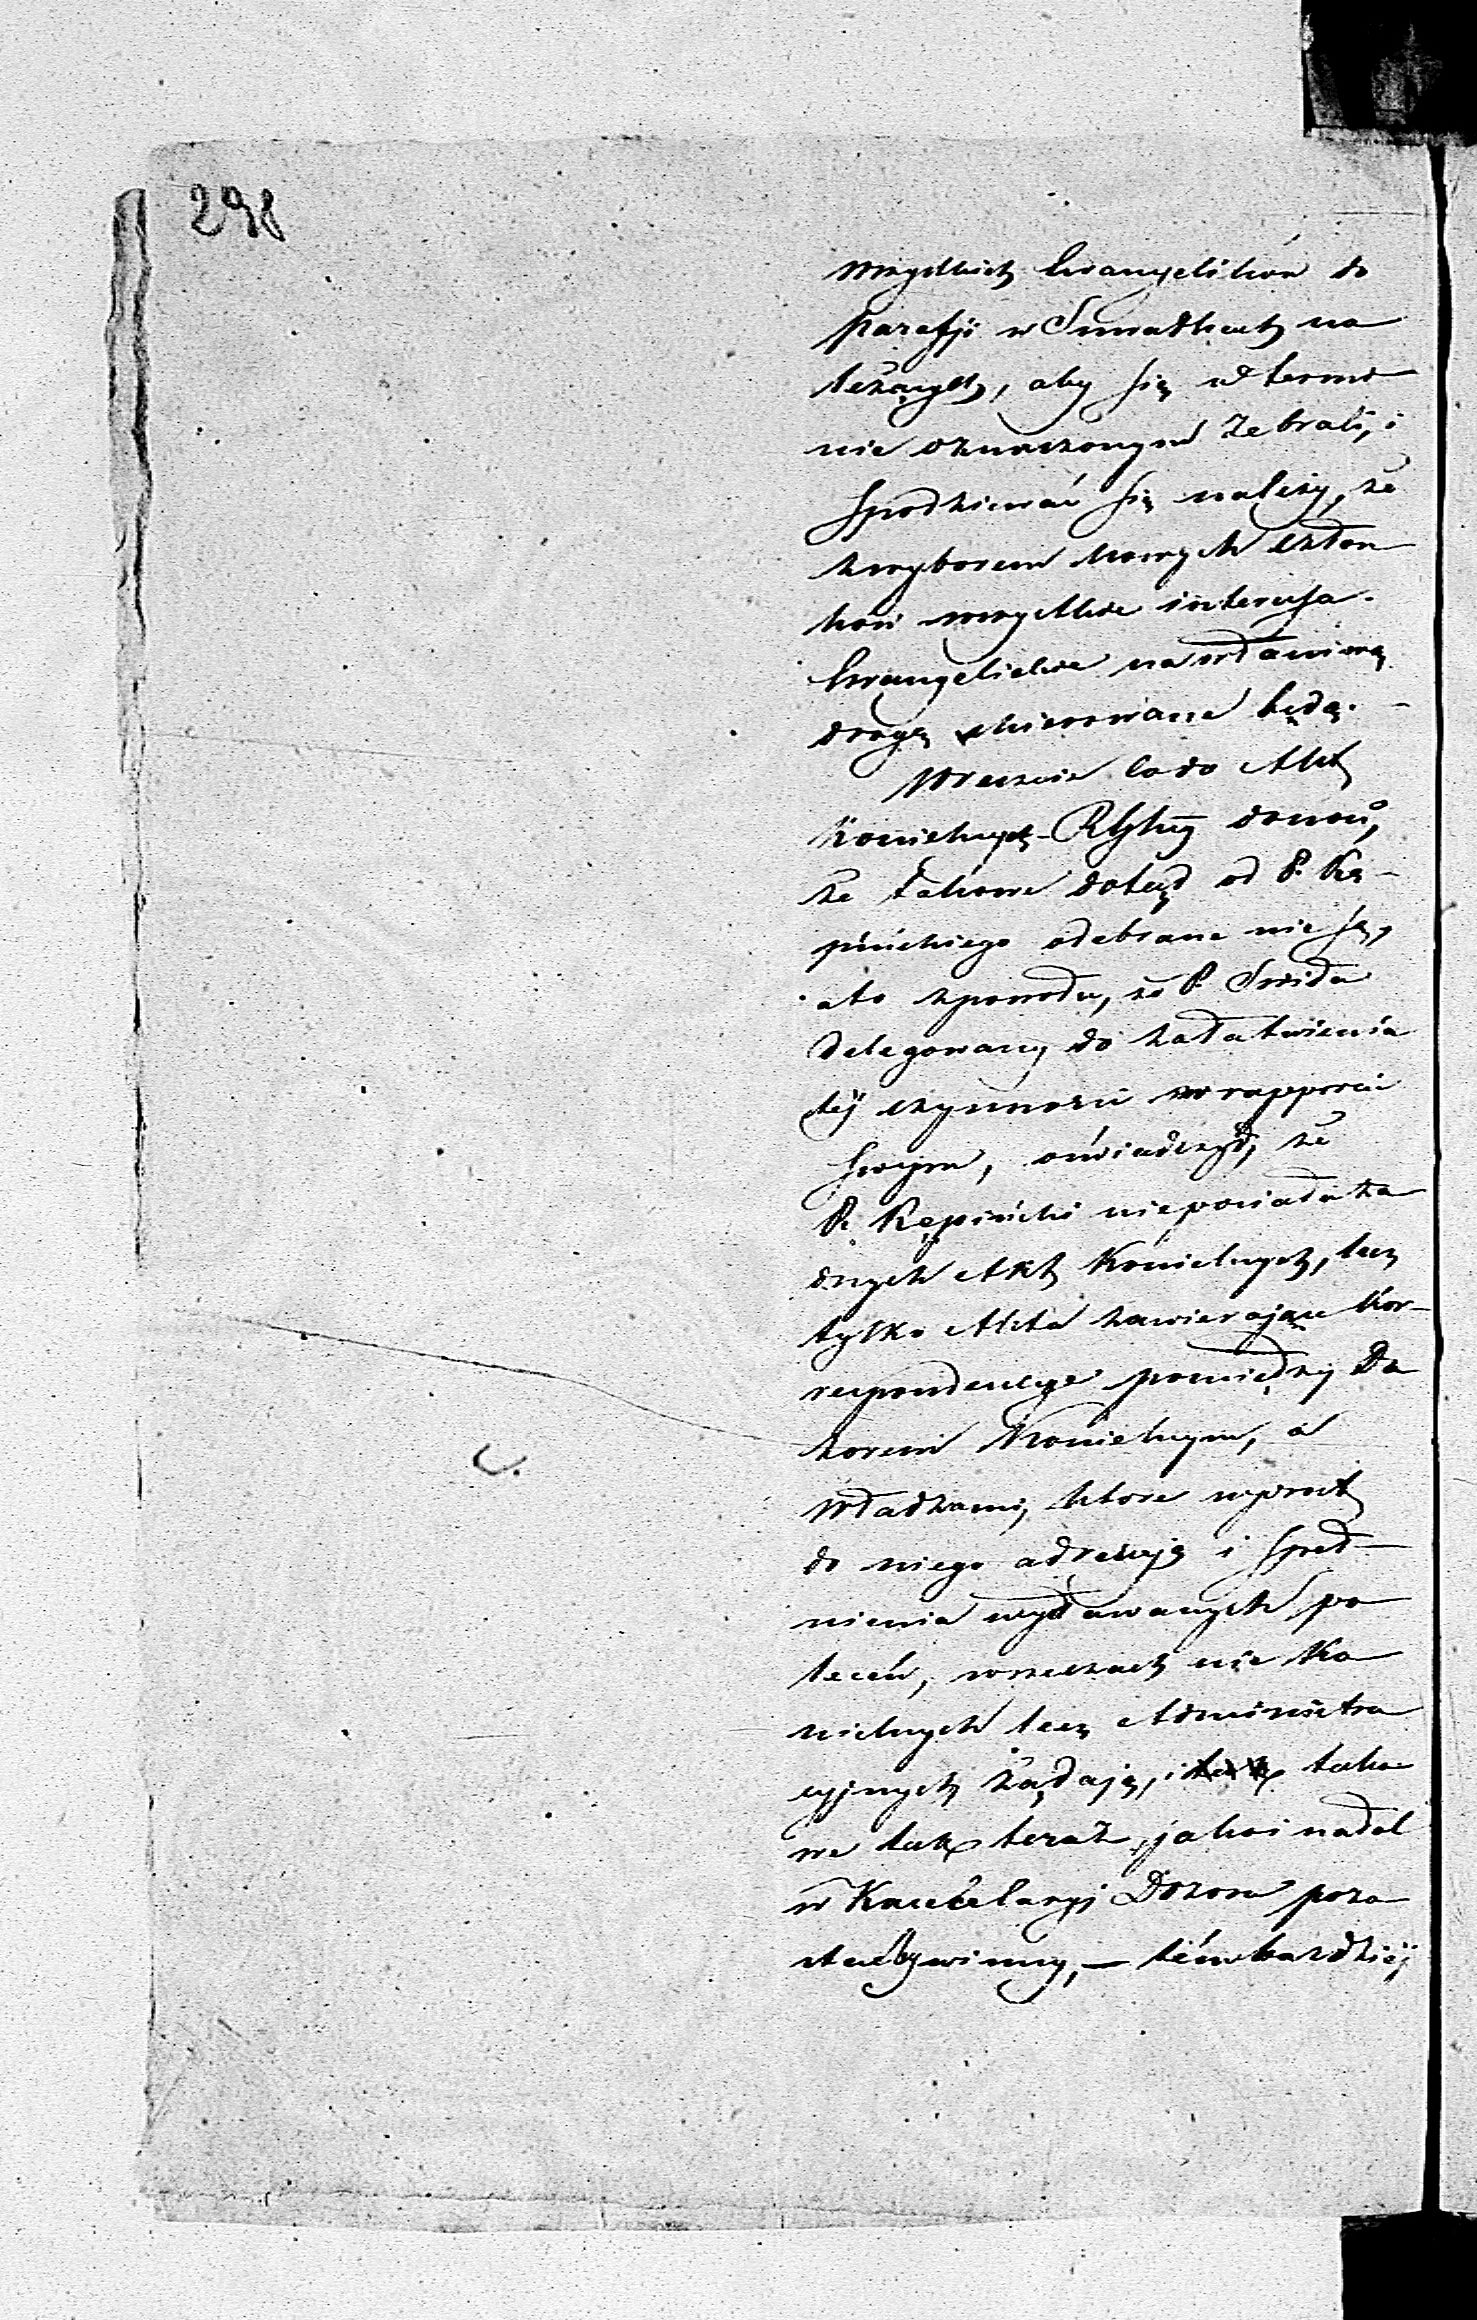 298
wszystkich Ewangelików do
parafji w Suwałkach na
leżących, aby się w termi
nie oznaczonym zebrali, i
spodziewać się należy, że
z wyborem nowych człon
ków wszystkie interessa
Ewangelickie na właściwą
drogę skierowane będą. –
Wreszcie co do Akt
Kościelnych donosi,
że takowe dotąd od P. Rę–
pińskiego odebrane nie są,
a to z powodu, że P. Świda
delegowany do załatwienia
téj czynności w rapporcie
swym, oświadczył, że
P. Rępiński nieposiada ża
dnych Akt Kościelnych, lecz
tylko Akta zawierające kor–
respondencye pomiędzy Do
zorem Kościelnym, a
Władzami, które wprost
do niego adresują i speł–
nienia wydawanych po
leceń, w rzeczach nie Ko
ścielnych lecz Administra
cyjnych żądają, i tako
we tak teraz, jako i nadal
w Kancelaryi Dozoru pozo
stać by winny, – tém bardziéj